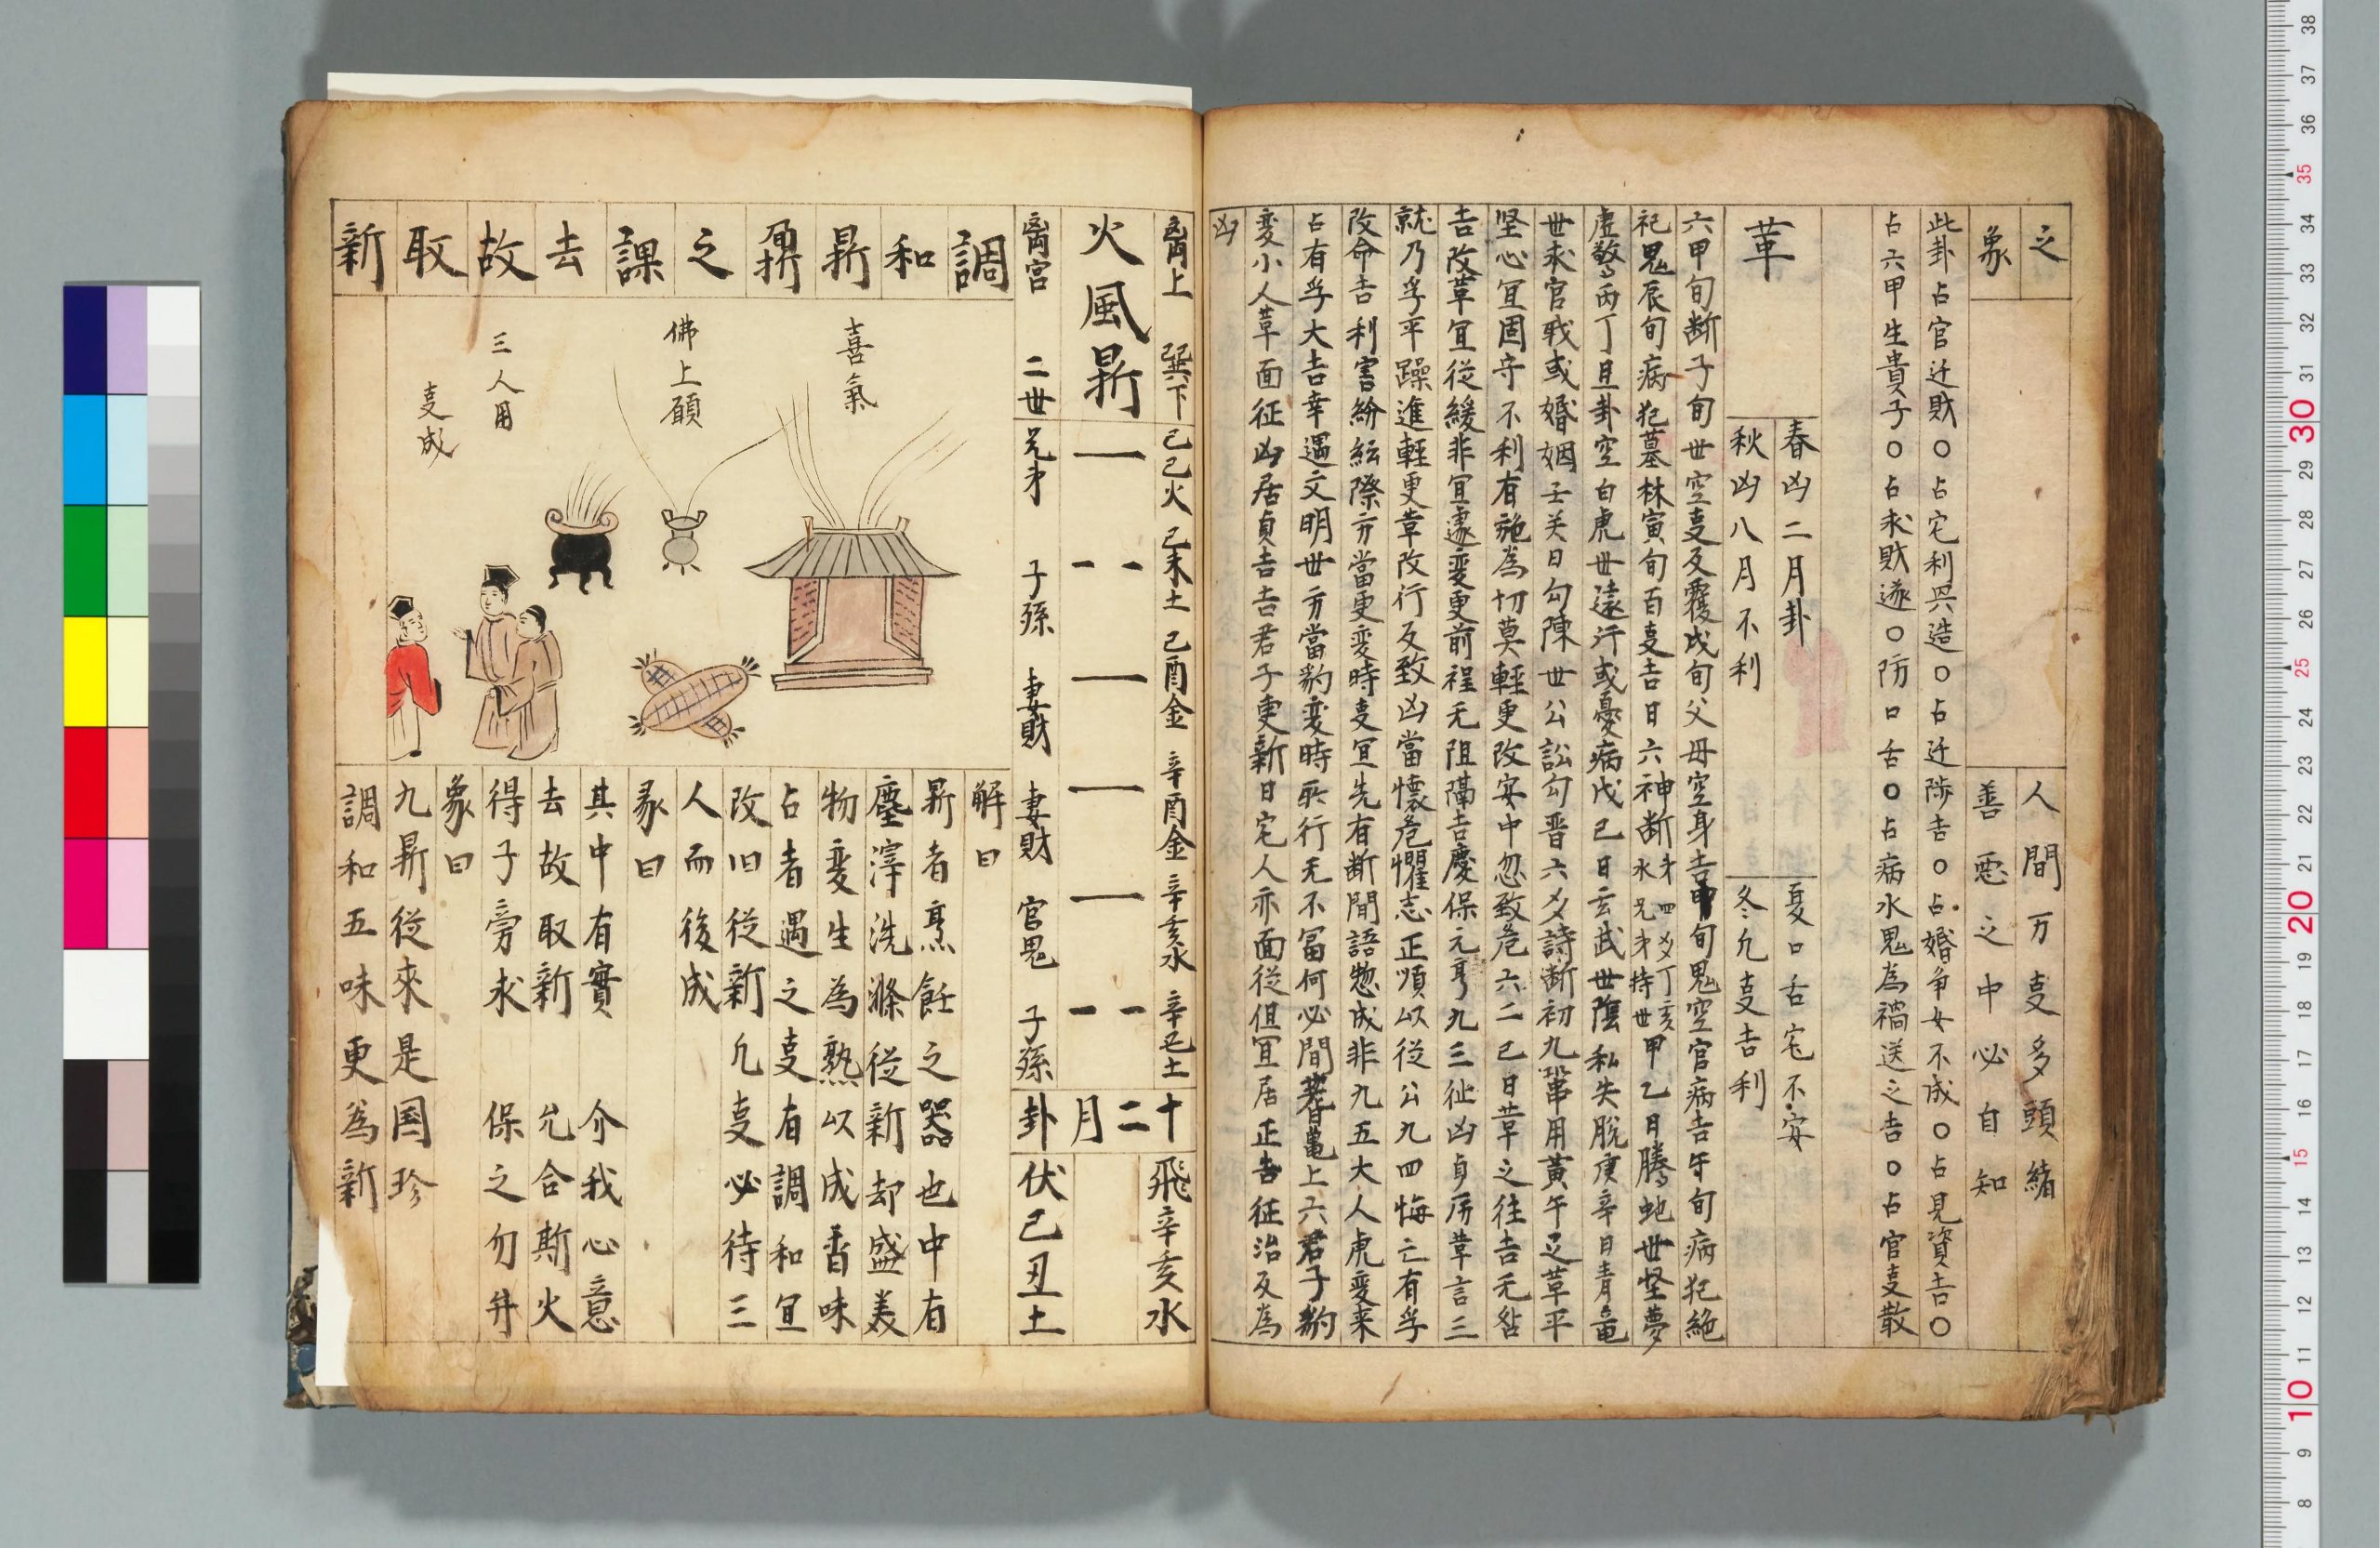 之
象
人間万㕝多頭緒
善悪之中必自知
此卦占官迁財〇占宅利㒷造〇占迁陟吉〇占婚争女不成〇占見資吉〇
占六甲生貴子〇占求財遂〇防口舌〇占病水鬼為禍送之吉〇占官㕝散
革
春凶二月卦
秋凶八月不利
夏口舌宅不安
冬凢㕝吉利
六甲旬断子旬世空㕝反覆戌旬父母空身吉申旬鬼空官病吉午旬病犯絶
祀鬼辰旬病犯墓林寅旬百㕝吉日六神断水才四爻丁亥兄才持世甲乙日騰虵世怪夢
虚驚丙丁旦卦空白虎世遠行或憂病戊己日玄武世陰私失脱庚辛日青竜
世求官戢或婚姻壬关日勾陳世公訟勾晋六爻詩断初九鞏用黄午足草平
坚心冝固守不利有施為切莫軽更改安中忽致危六二己日草之往吉无咎
吉改草冝従緩非冝遽変更前程无阻隔吉慶保元亨九三征凶貞厉草言三
就乃孚平躁進軽更草改行反致凶當懐危懼志正順以従公九四悔亡有孚
改命吉利害紛紜際方當更変時㕝冝先有断間語惣成非九五大人虎変来
占有孚大吉幸遇文明世方當豹変時所行无不冨何必間蓍亀上六君子豹
変小人草面征凶居貞吉吉君子更新日宅人亦面従但冝居正吉征治反為
凶
离上
巽下
火風鼎
离宮
二世
己巳火
己未土
己酉金
辛酉金
辛亥水
辛丑土
兄才
子孫
妻財
妻財
官鬼
子孫
十二月卦
飛辛亥水
伏己丑土
調和鼎鼐之課去故取新
喜氣
佛上願
三人用
㕝成
解曰
鼎者烹飪之器也中有
塵滓洗滌従新却盛美
物変生為熟以成香味
占者遇之㕝有調和冝
改旧従新凢㕝必待三
人而後成
彖曰
其中有實 介我心意
去故取新 允合斯火
得子旁求 保之勿廾
象曰
九鼎従來是国珍
調和五味更為新